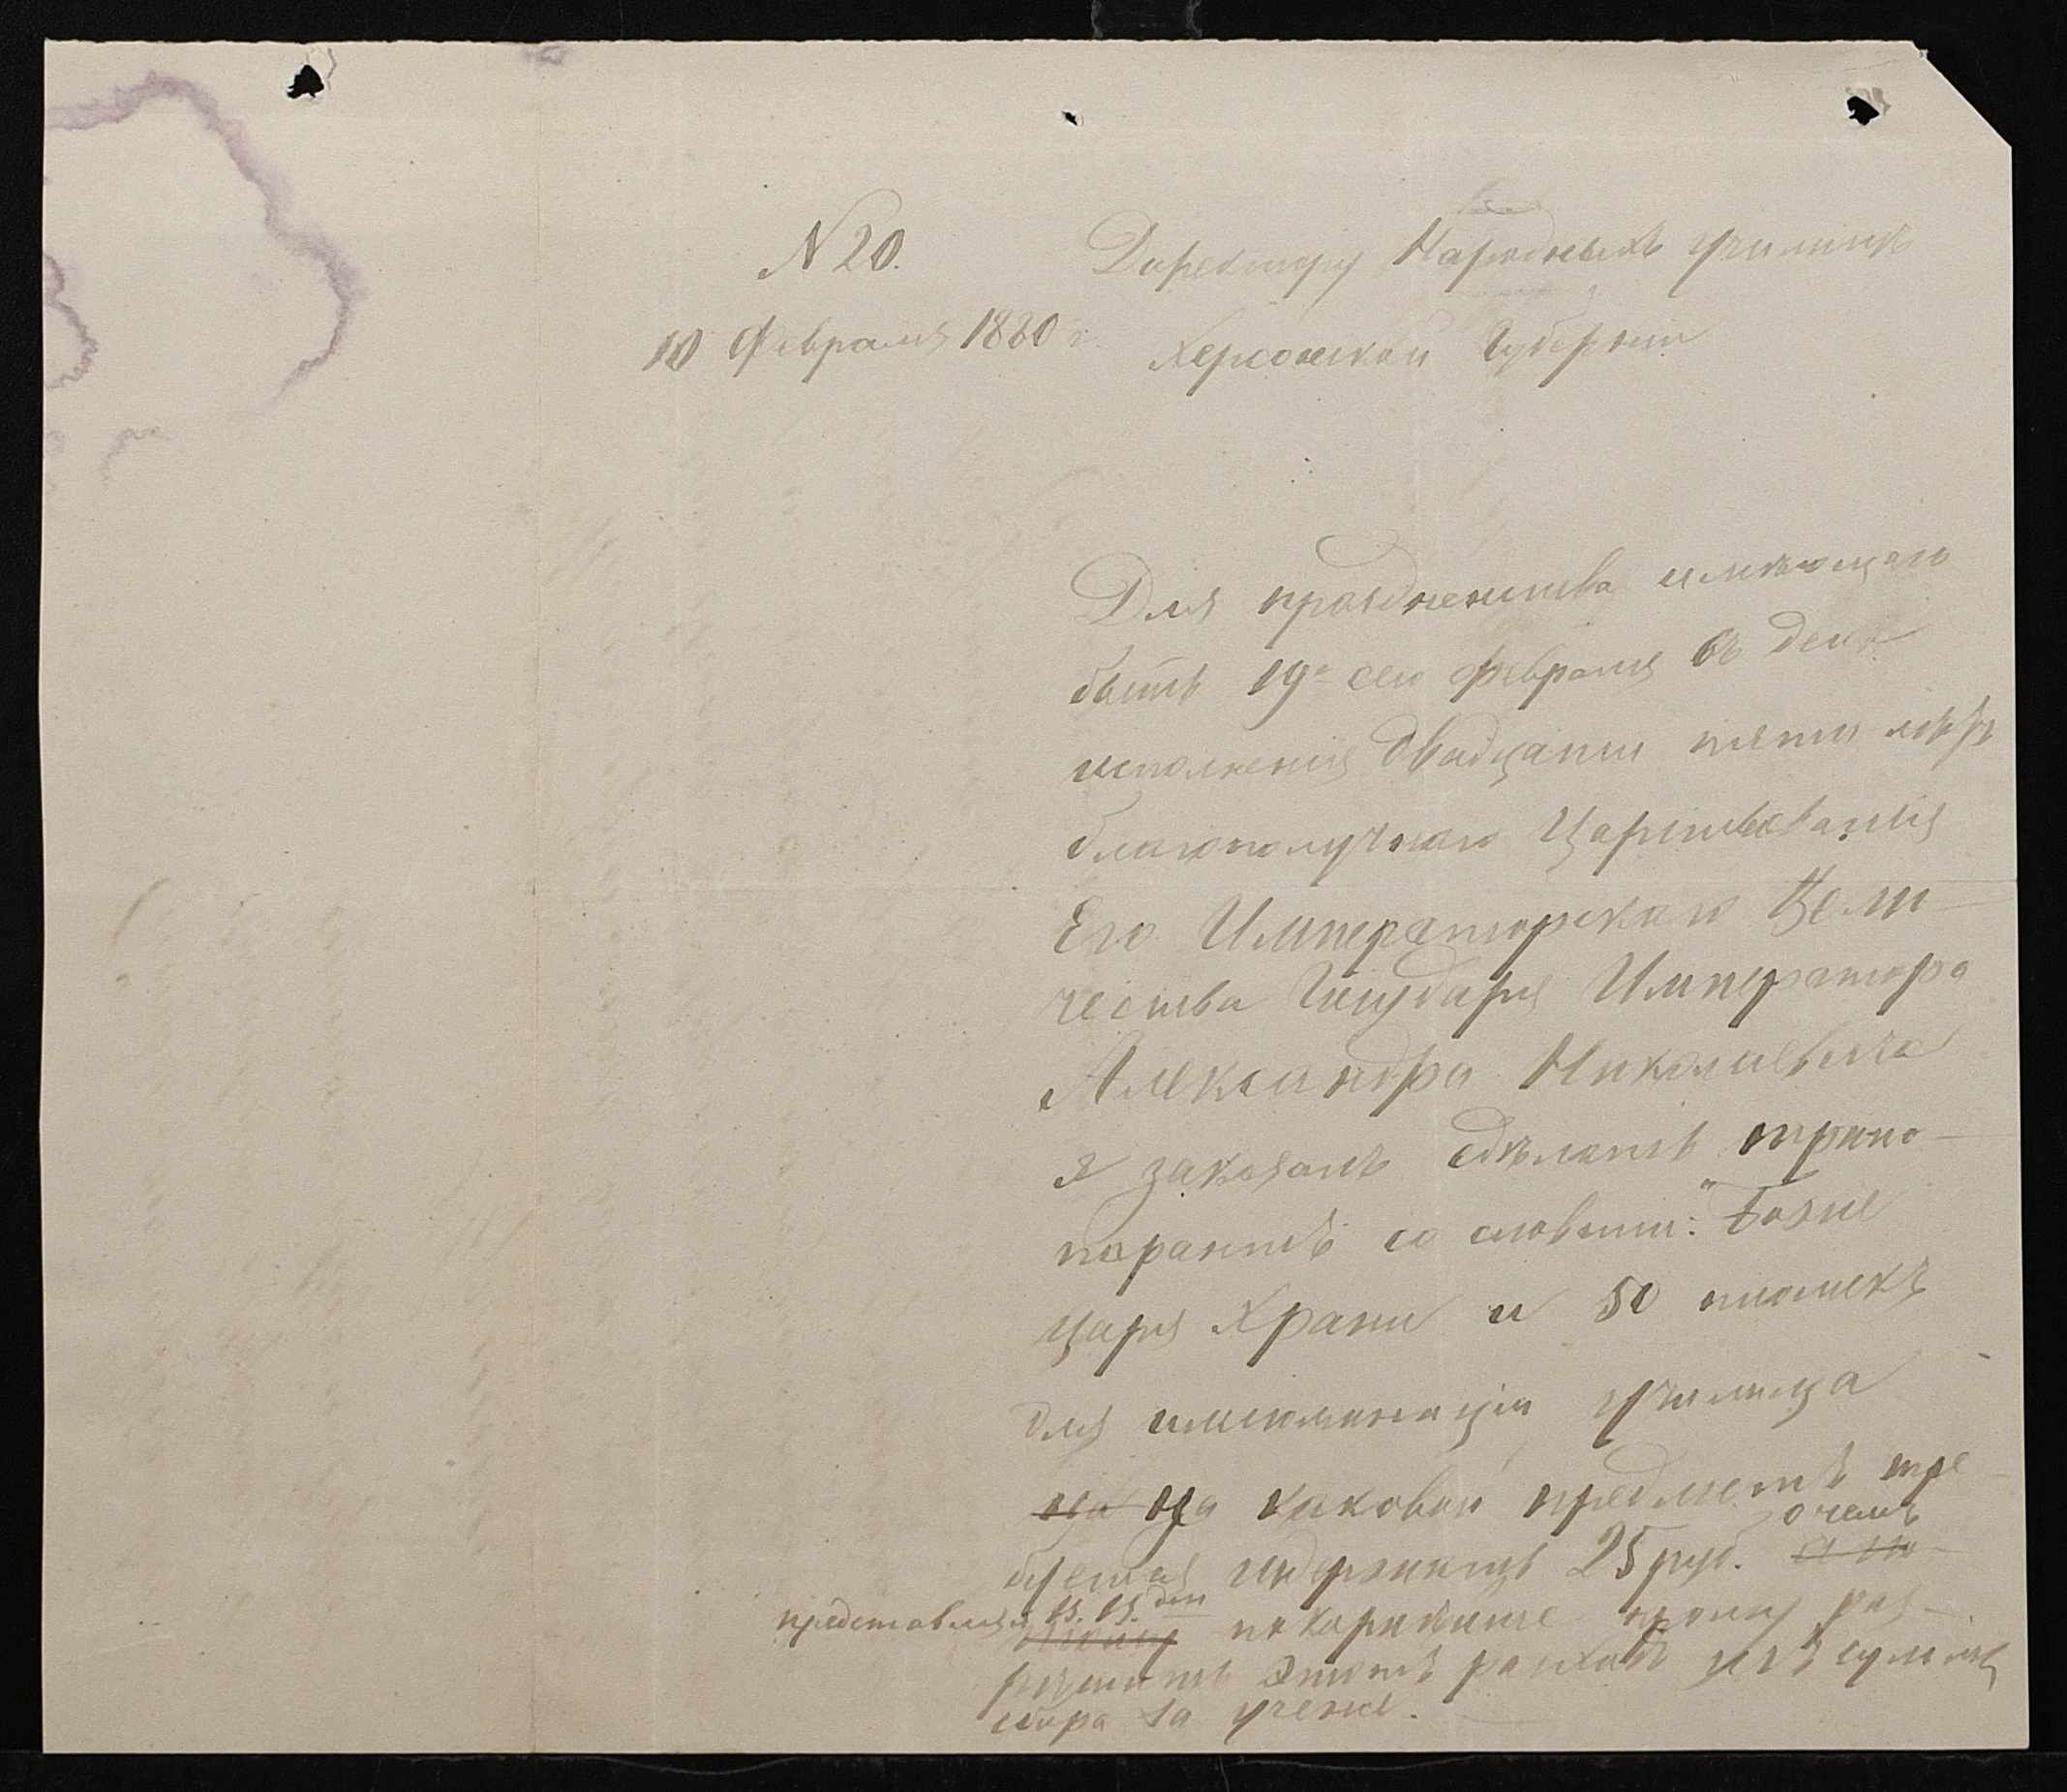 N 20.
10 Февраля 1880 г.
Директору Народныхъ училищъ
Херсонской Губерніи
Для празднества имѣющаго
быть 19го сего февраля въ день
исполненія двадцати пяти лѣтъ
благополучнаго Царствованія
Его Императорскаго Вели-
чества Государя Императора
Александра Николаевича
я заказалъ сдѣлать транс-
парантъ со словами: "Боже
Царя Храни и 50 плошекъ
для иллюминаціи училища
на на каковой предметъ тре
буется издержать 25 руб. о чемъ
представляя В. В. покорнѣйше прошу раз-
рѣшить этотъ расходъ изъ суммы
сбора за ученіе.